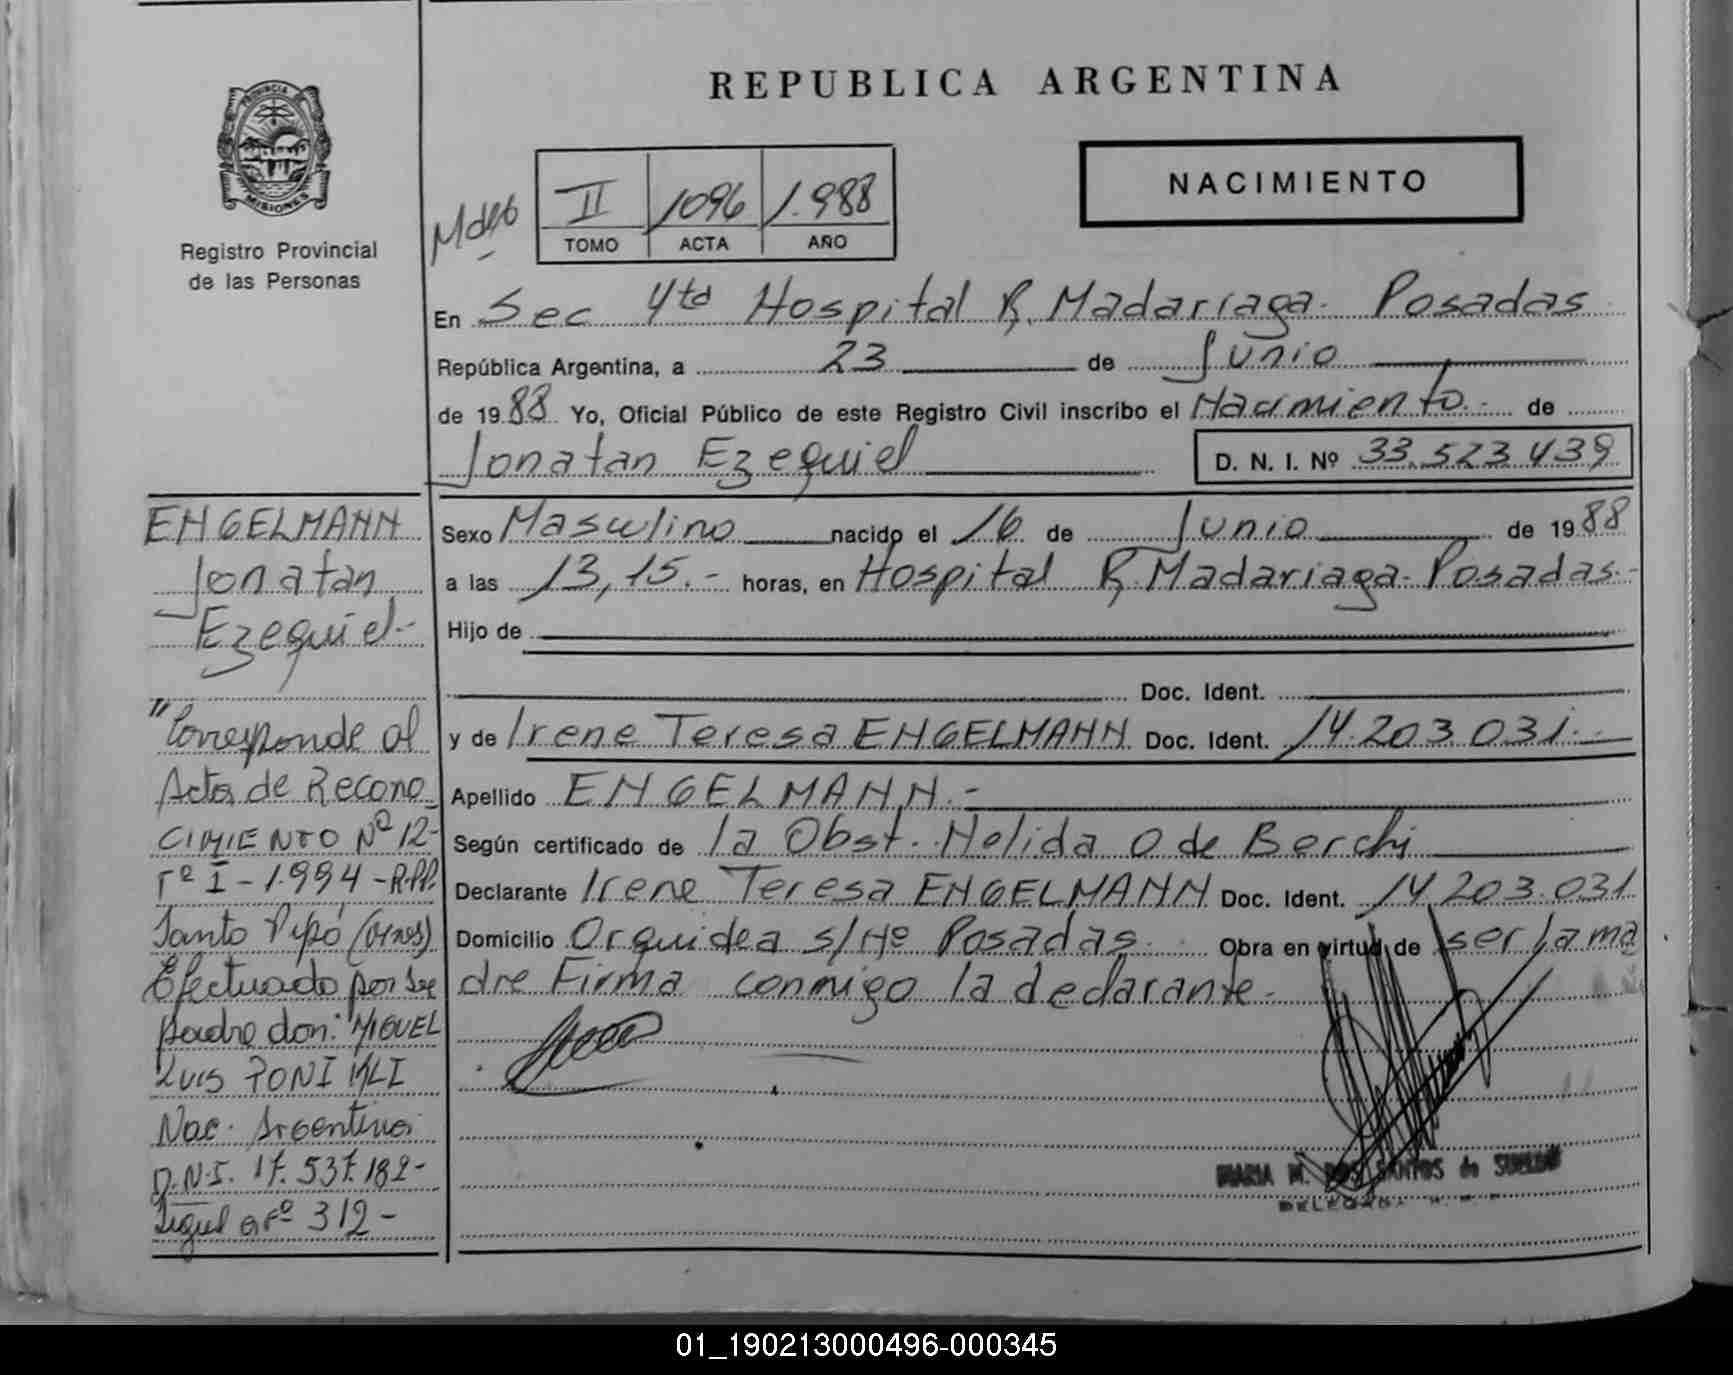 REPUBLICA ARGENTINA
PROVINCIA DE
MISIONES
Registro Provincial
de las Personas
NACIMIENTO
II 1096 1.988
TOMO ACTA AÑO
En Sec 4ta Hospital R. Madariaga. Posadas
República Argentina, a 23 de Junio
de 1988 Yo, Oficial Público de este Registro Civil inscribo el Nacimiento. de
Jonatan Ezequiel D. N. I. Nº 33.523.439
Sexo Masculino nacido el 16 de Junio de 1988
a las 13,15.- horas, en Hospital R. Madariaga- Posadas.-
Hijo de
Doc. Ident.
y de Irene Teresa ENGELMANN Doc. Ident. 14.203.031.-
Apellido ENGELMANN.-
Según certificado de la Obst. Nelida O de Berchi
Declarante Irene Teresa ENGELMANN Doc. Ident. 14.203.031
Domicilio Orquidea s/Nº Posadas. Obra en virtud de ser la ma
dre Firma conmigo la declarante-
MARIA M. DOS SANTOS de
DELEGADA
ENGELMANN
Jonatan
Ezequiel-
"Corresponde al
Acta de Recono
CIMIENTO Nº 12-
Tº I-1.994-R.P.P.
Santo Pipó (Mnes)
Efectuado por su
padre don: MIGUEL
LUIS
Nac. Argentino
D.N.I. 17.537.182-
312-
01_190213000496-000345